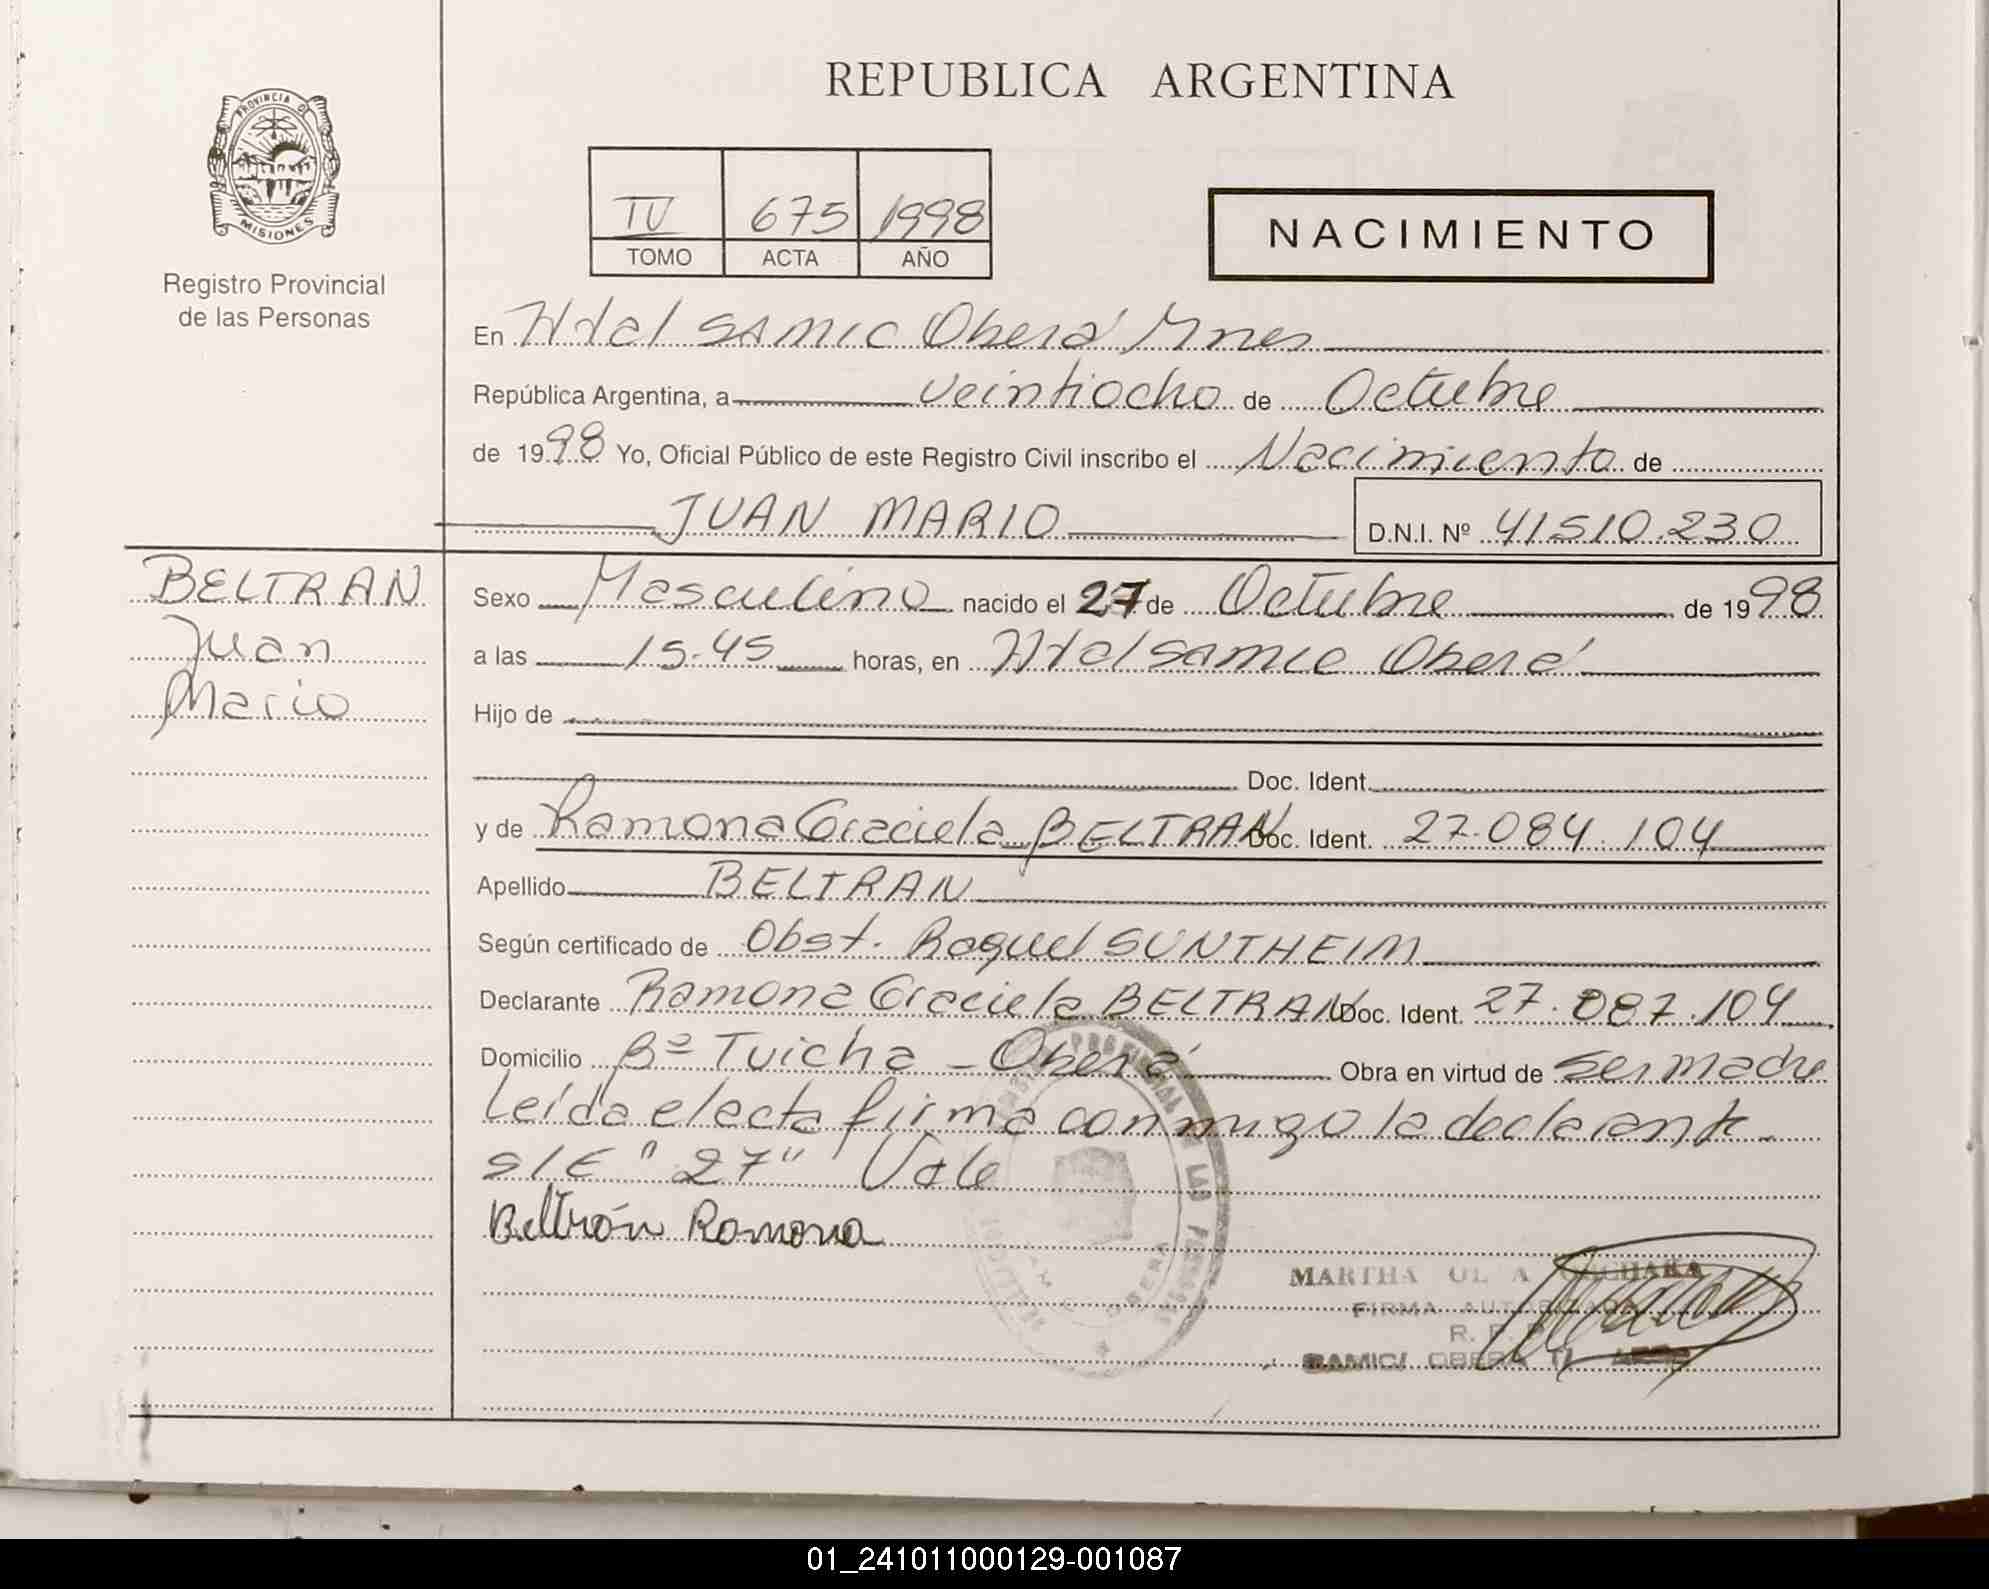 REPUBLICA ARGENTINA
PROVINCIA DE
MISIONES
Registro Provincial
de las Personas
IV 675 1998
TOMO ACTA AÑO
NACIMIENTO
En Htal SAMIC Oberá Mnes
República Argentina, a veintiocho de Octubre
de 1998 Yo, Oficial Público de este Registro Civil inscribo el Nacimiento de
JUAN MARIO D.N.I. Nº 41510.230
BELTRAN
Juan
Mario
Sexo Masculino nacido el 27 de Octubre de 1998
a las 15.45 horas, en Htal Samic Oberá
Hijo de
Doc. Ident.
y de Ramona Graciela BELTRAN Doc. Ident. 27.084.104
Apellido BELTRAN
Según certificado de Obst. Raquel SUNTHEIM
Declarante Ramona Graciela BELTRAN Doc. Ident. 27.087.104
Domicilio Bº Tuicha - Oberá Obra en virtud de ser madre
Leída el acta firma conmigo la declarante.
S/E "27" Vale
Beltrán Ramona
MARTHA
FIRMA AUTORIZADA
SAMIC/ OBERA
01_241011000129-001087